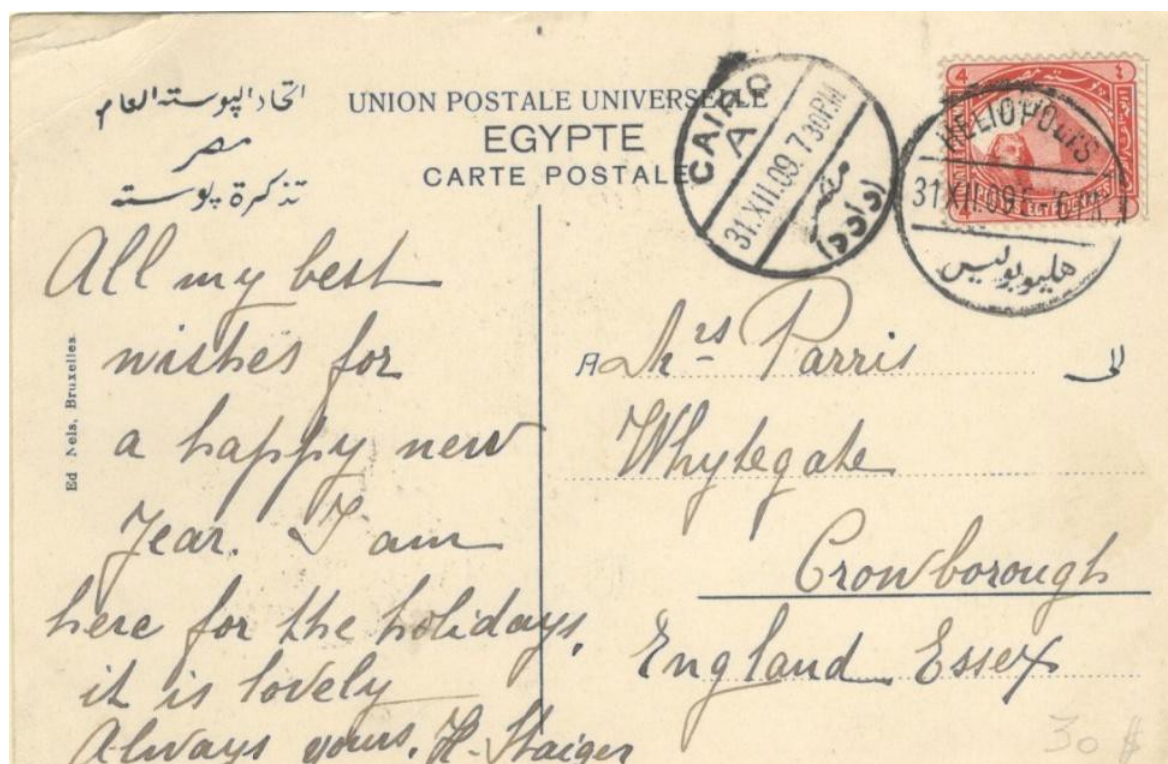 اتحاد الپوسته العام
مصر
تذكرة پوسته
UNION POSTALE UNIVERSELLE
EGYPTE
CARTE POSTALE
CAIRO
A
31.XII.09. 7 30PM
مصر
4
٤
HELIOPOLIS
31.XII.09
هليوبوليس
All my best
wishes for
a happy new
Year. I am
here for the holidays,
it is lovely
Always yours. H. Staiger
Ed Nels, Bruxelles
A Mrs Parris
الى
Whytegate
Crowborough
England Essex
30 $